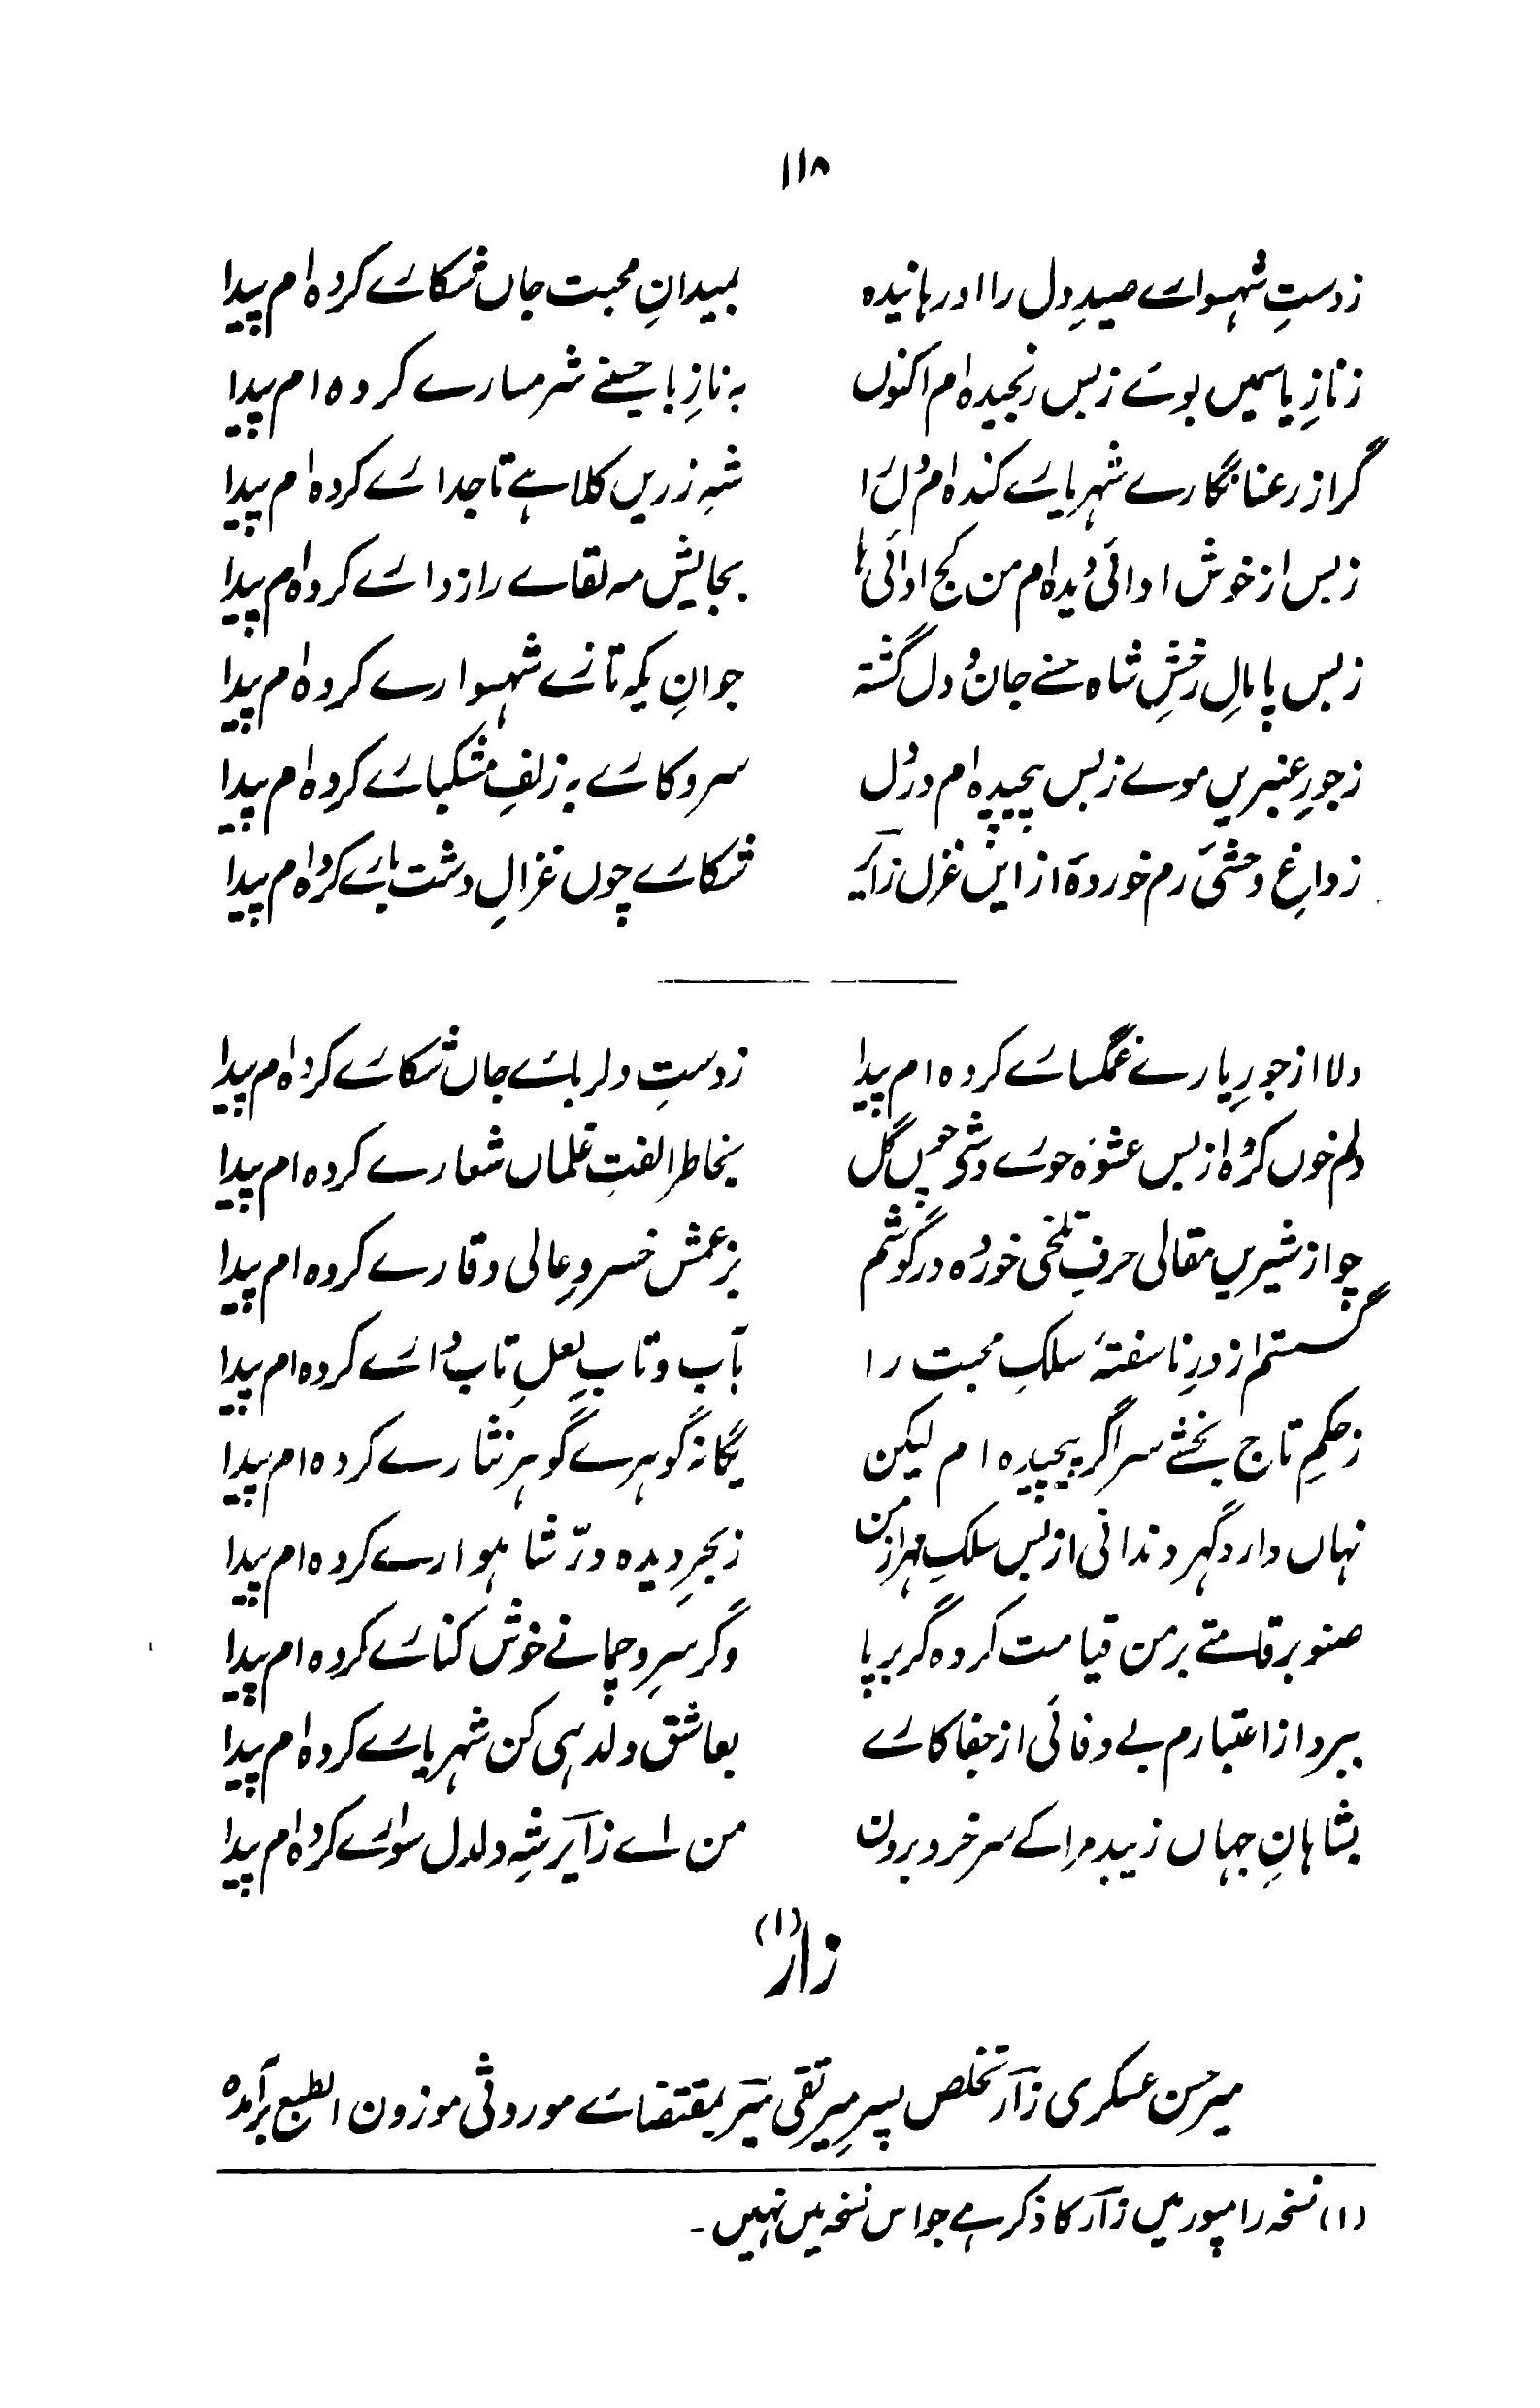 ۱۱۸
زدستِ شہسوارے صیدِ دل را او رہانیدہ بمیدانِ محبت جاں شکارے کردہ ام پیدا
زنازِ یاسمیں بوئے زبس رنجیدہ ام اکنوں بہ نازِ با حسنے شرمسارے کردہ ام پیدا
گر از رعنا نگارے شہریارے کندہ ام دل را شہِ زریں کلاہے تاجدارے کردہ ام پیدا
زبس از خوش ادائی دیدہ ام من کج ادائی ہا بجایش مہ لقاے رازدارے کردہ ام پیدا
زبس پامالِ رخشِ شاہ حسنے جان و دل گشتہ جوانِ یکہ تازے شہسوارے کردہ ام پیدا
زجورِ عنبریں موے زبس پیچیدہ ام در دل سروکارے بہ زلفِ مشکبارے کردہ ام پیدا
زداغِ وحشیٔ رم خوردۂ از این غزل زآیر شکارے چوں غزالِ دشت یارے کردہ ام پیدا
دلا از جورِ یارے غمگسارے کردہ ام پیدا زدستِ دلربائے جاں شکارے کردہ ام پیدا
دلم خوں کردہ از بس عشوۂ حورے وشی چوں گل بخاطر الفتِ غلماں شعارے کردہ ام پیدا
چو از شیریں مقالی حرفِ تلخی خوردہ در گوشم بزعمش خسروِ عالی وقارے کردہ ام پیدا
گسستم از درِ ناسفتۂ سلکِ محبت را بآب و تابِ لعلِ تاب دارے کردہ ام پیدا
زحکمِ تاج بخشے سر اگر پیچیدہ ام لیکن یگانہ گوہرے گوہر نثارے کردہ ام پیدا
نہاں دارد گہر دندانی از بس سلکِ مہر از من زبحرِ دیدہ درّ شاہوارے کردہ ام پیدا
صنوبر قامتے بر من قیامت کردہ گر برپا وگر سروِ چمانے خوش کنارے کردہ ام پیدا
ببرد از اعتبارم بے وفائی از جفا کارے بعاشق دلدہی کن شہریارے کردہ ام پیدا
بشاہانِ جہاں زیبد مرا کے سر فرو بردن من اے زآیر شہِ دلدل سوارے کردہ ام پیدا
زار(۱)
میر حسن عسکری زآر تخلص پسرِ میر تقی میؔر بمقتضائے موروثی موزون الطبع برآمدہ
(۱) نسخہ رامپور میں زآر کا ذکر ہے جو اس نسخہ میں نہیں۔